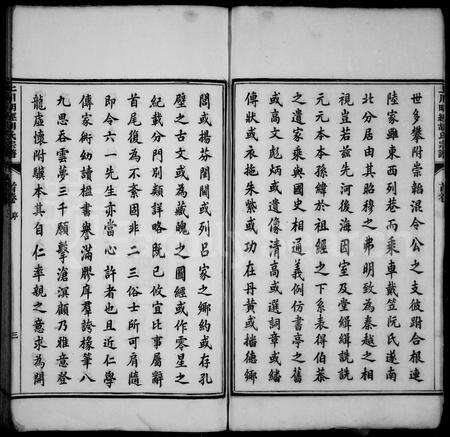 世多攀附崇韜混令公之支彼跗合根連
陸家雖東西列巷而乘車戴笠阮氏遂南
北分居由其昭穆之弗明致為秦越之相
視豈若茲先河後海因室及堂緝緝詵詵
元元本本孫緯於祖經之下系表得伯恭
之遺家乘與國史相通義例仿書亭之舊
或高文彪炳或遺像清高或選詞章或繕
傳狀或衣拖朱紫或功在丹黃或描德鄉
閭或揚芬閨闥或列呂家之鄉約或存孔
壁之古文或為藏魄之圖經或作零星之
紀載分門別類詳略既已攸宜比事屬辭
首尾後為不紊固非二三俗士所可肩隨
即令六一先生亦當心許者也且近仁學
傳家術幼讀楹書譽滿膠庠群誇椽筆八
九思吞雲夢三千願擊滄溟顧乃雅意登
龍虛懷附驥本其自仁率親之意求為開
首卷 序
三